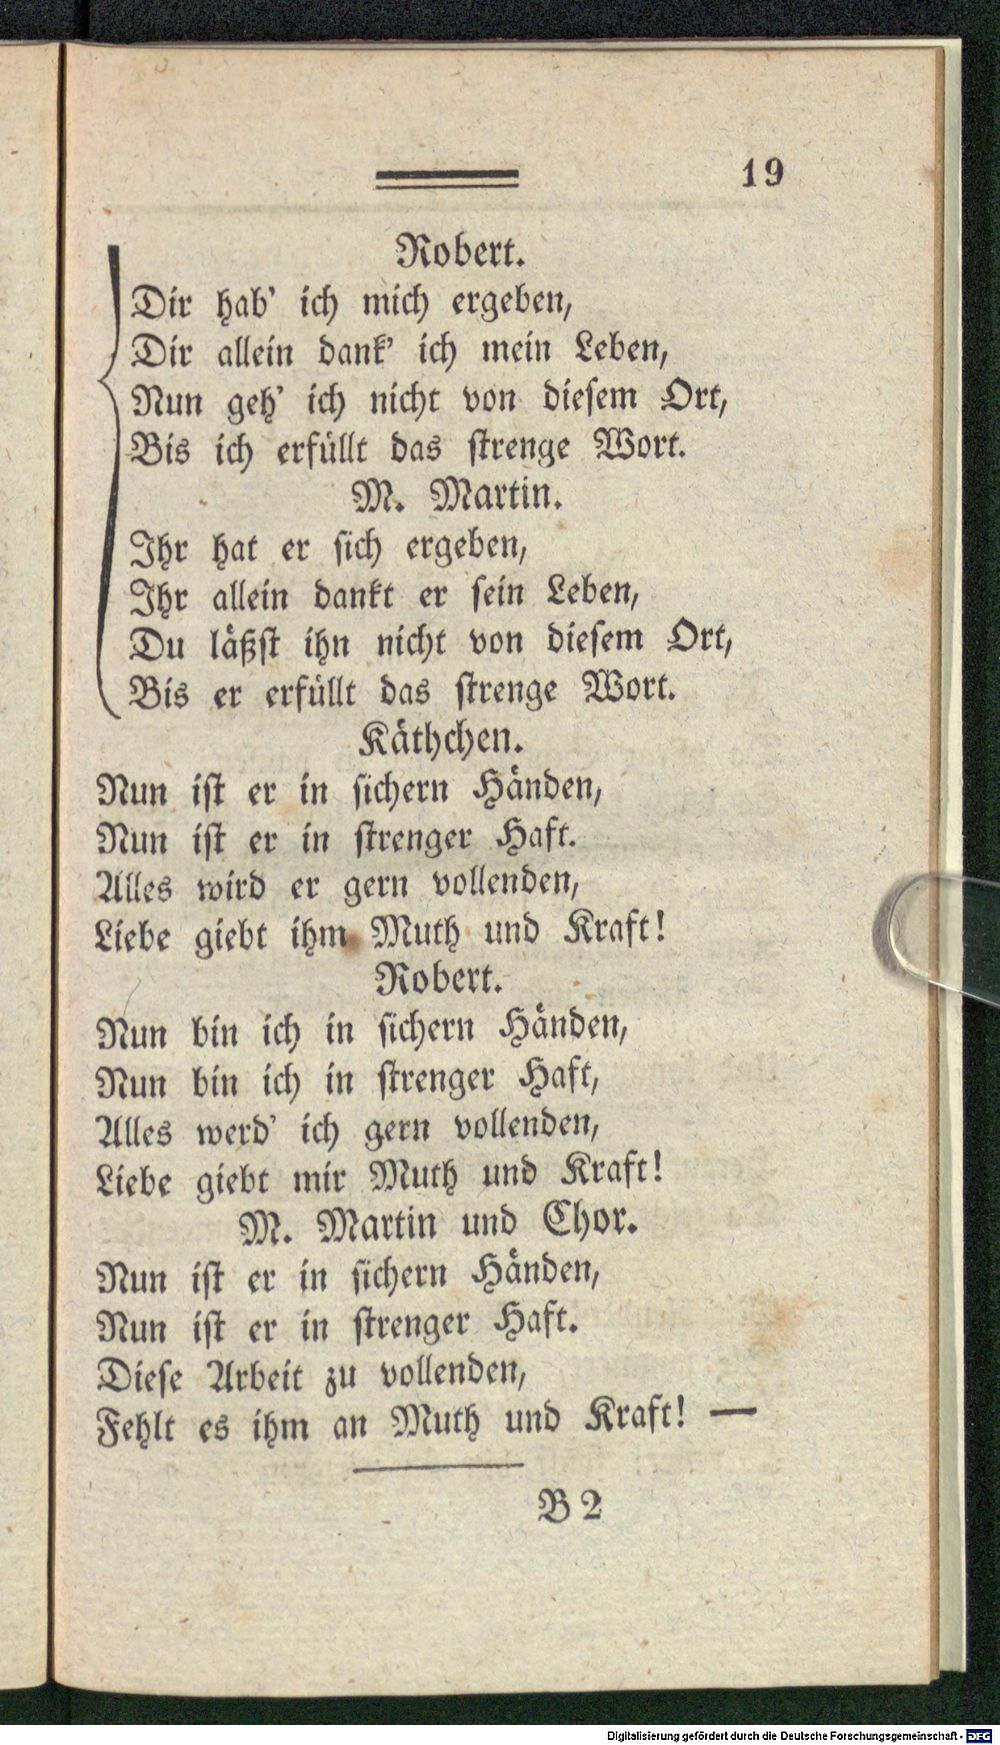 19
Robert.
Dir hab' ich mich ergeben,
Dir allein dank' ich mein Leben,
Nun geh' ich nicht von diesem Ort,
Bis ich erfüllt das strenge Wort.
M. Martin.
Ihr hat er sich ergeben,
Ihr allein dankt er sein Leben,
Du läßst ihn nicht von diesem Ort,
Bis er erfüllt das strenge Wort.
Käthchen.
Nun ist er in sichern Händen,
Nun ist er in strenger Haft.
Alles wird er gern vollenden,
Liebe giebt ihm Muth und Kraft!
Robert.
Nun bin ich in sichern Händen,
Nun bin ich in strenger Haft,
Alles werd' ich gern vollenden,
Liebe giebt mir Muth und Kraft!
M. Martin und Chor.
Nun ist er in sichern Händen,
Nun ist er in strenger Haft.
Diese Arbeit zu vollenden,
Fehlt es ihm an Muth und Kraft! —
B 2
Digitalisierung gefördert durch die Deutsche Forschungsgemeinschaft - DFG